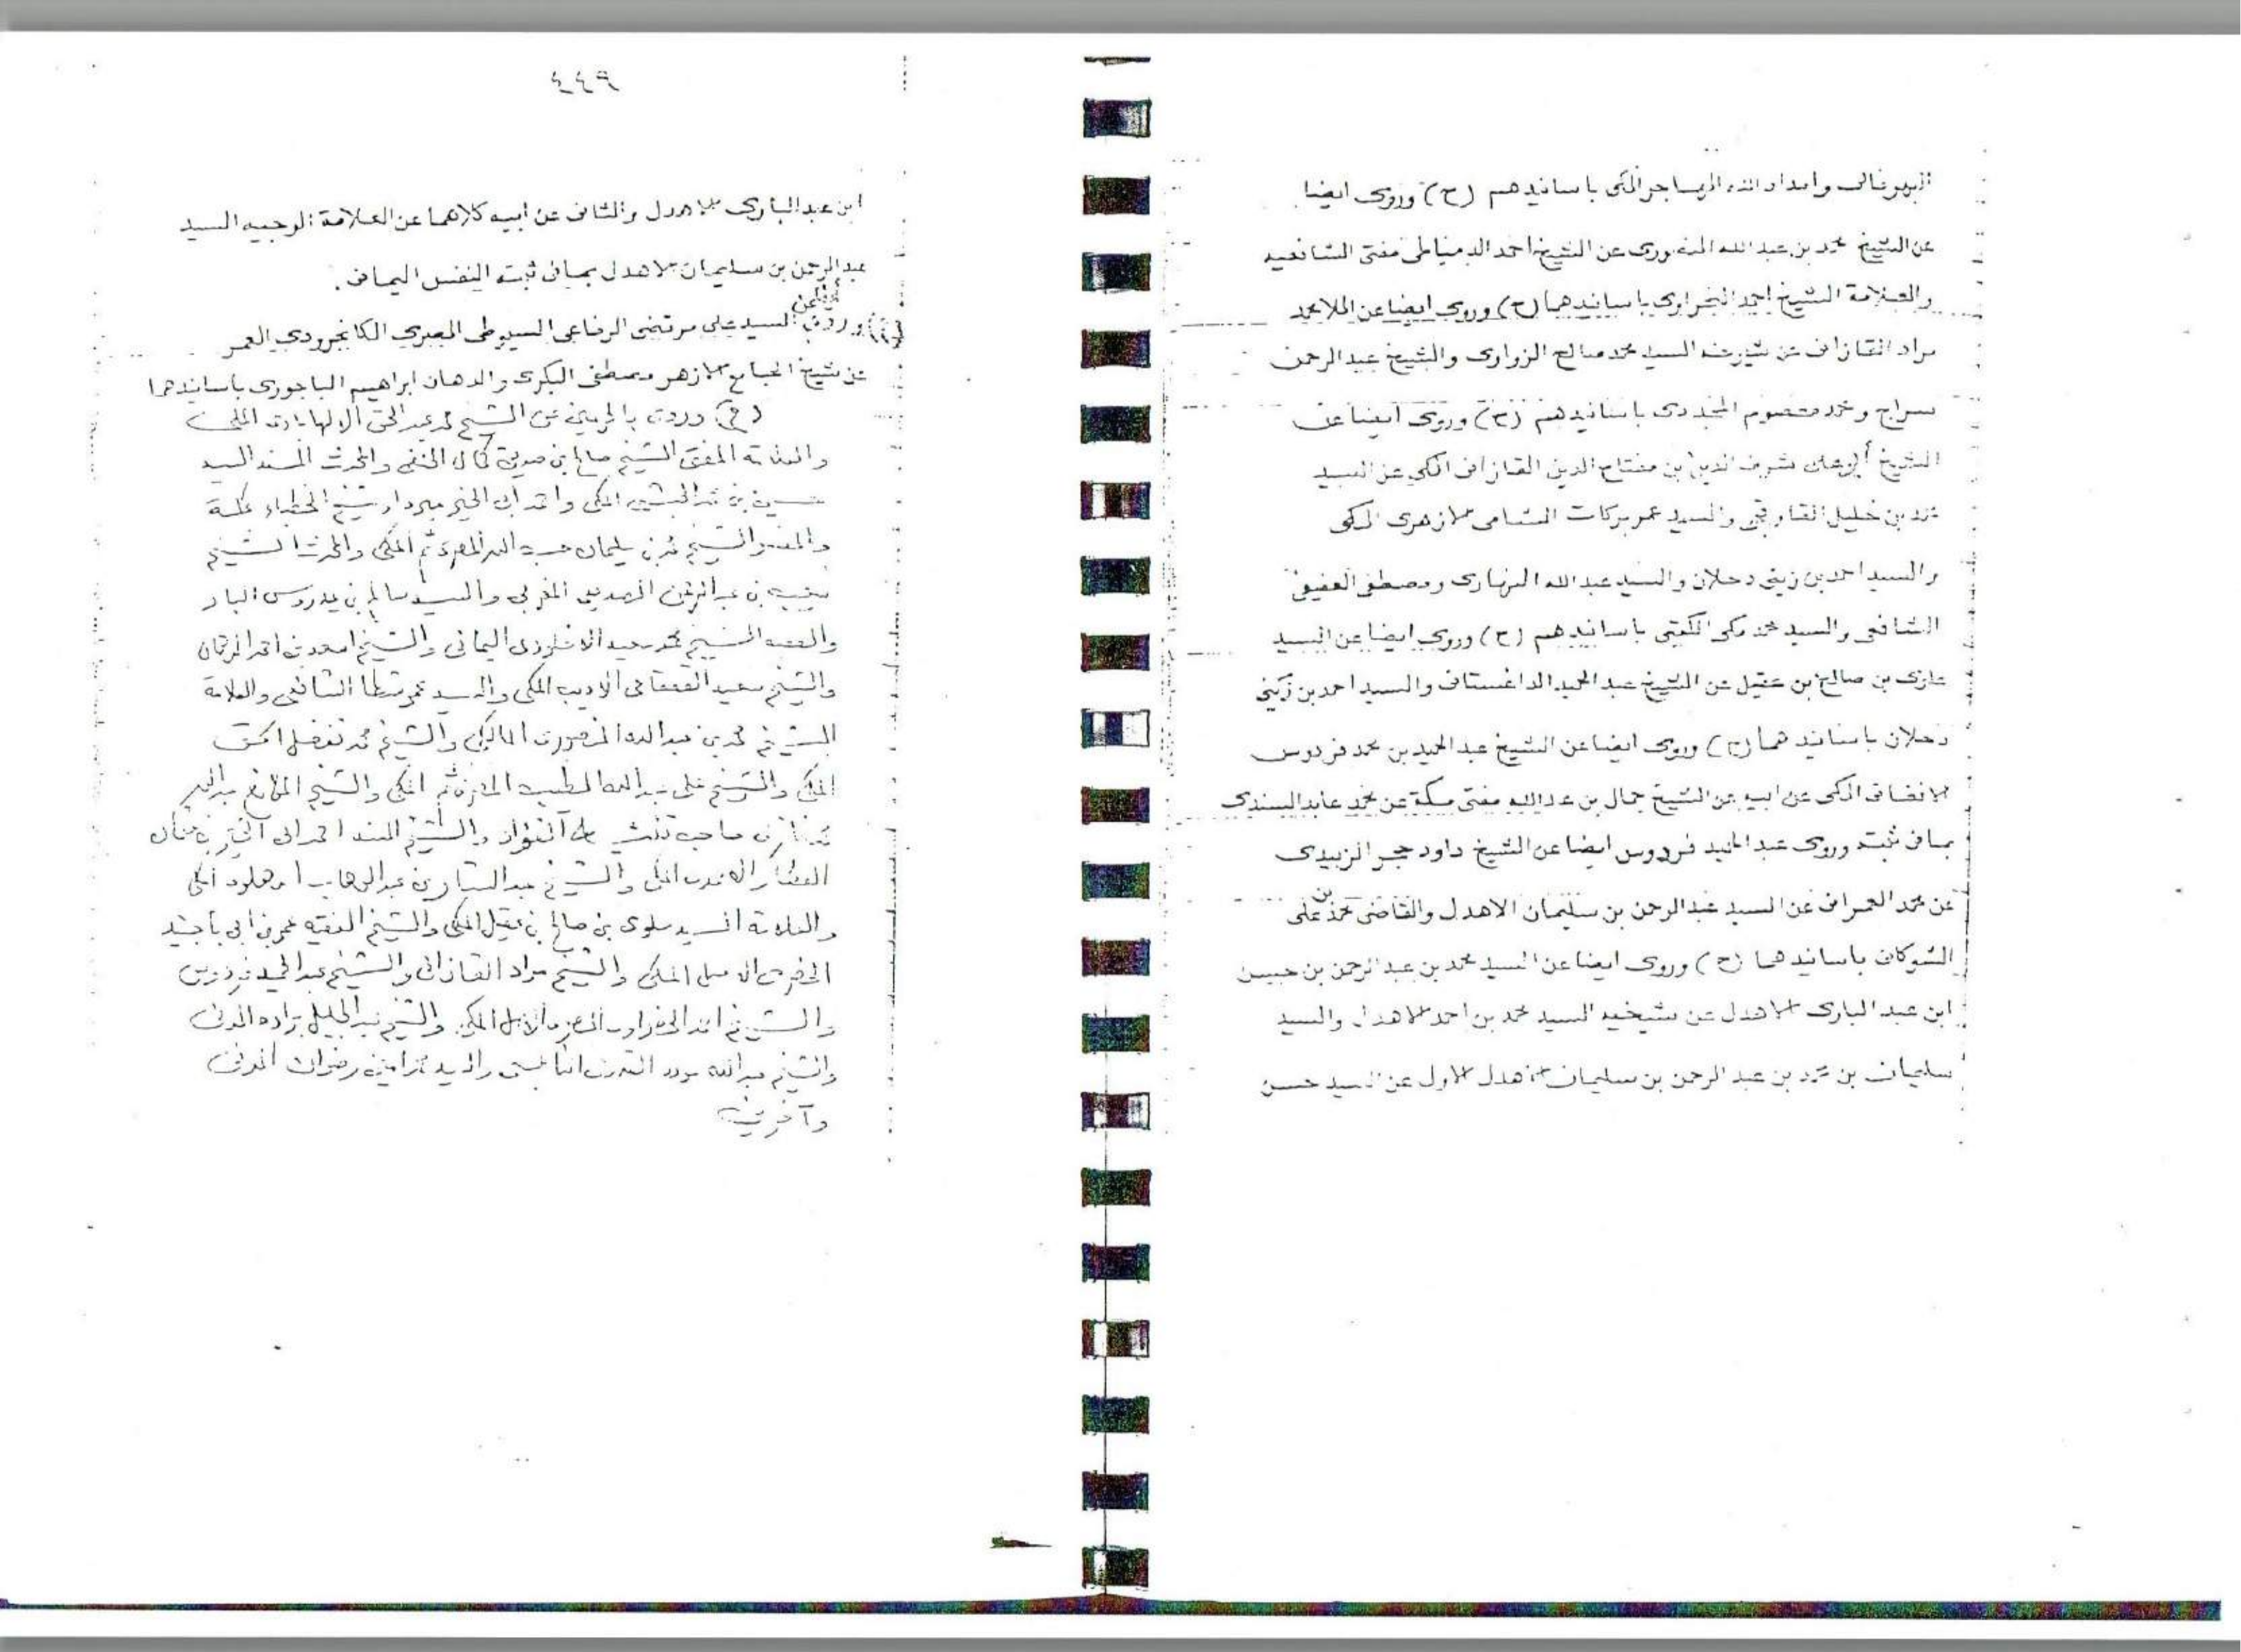 وامداد الله المهاجر المكى باسانيدهم (ح) وروى ايضا
عن الشيخ محمد بن عبد الله المنصورى عن الشيخ احمد الدمياطى مفتى الشافعيه
والعلامة الشيخ احمد النحراوى باسانيدهما (ح) وروى ايضا عن الملا محمد
مراد القازانى عن السيد محمد صالح الزواوى والشيخ عبد الرحمن
سراج ومحمد معصوم المجددى باسانيدهم (ح) وروى ايضا عن
الشيخ شرف الدين بن مفتاح الدين القازانى المكى عن السيد
محمد بن خليل القاوقجى والسيد عمر بركات الشامى الازهرى المكى
والسيد احمد بن زينى دحلان والسيد عبد الله النهارى ومصطفى العفيفى
الشافعى والسيد محمد مكى الكتبى باسانيدهم (ح) وروى ايضا عن السيد
علوى بن صالح بن عقيل عن الشيخ عبد الحميد الداغستانى والسيد احمد بن زينى
دحلان باسانيدهما (ح) وروى ايضا عن الشيخ عبد الحميد بن محمد فردوس
الافغانى المكى عن ابيه عن الشيخ جمال بن عبد الله مفتى مكة عن محمد عابد السندى
بما فى ثبته وروى عبد الحميد فردوس ايضا عن الشيخ داود حجر الزبيدى
عن محمد العمرانى عن السيد عبد الرحمن بن سليمان الاهدل والقاضى محمد بن على
الشوكانى باسانيدهما (ح) وروى ايضا عن السيد محمد بن عبد الرحمن بن حسن
ابن عبد البارى الاهدل عن شيخيه السيد محمد بن احمد الاهدل والسيد
سليمان بن محمد بن عبد الرحمن بن سليمان الاهدل الاول عن السيد حسن
ابن عبد البارى الاهدل والثانى عن ابيه كلاهما عن العلامة الوجيه السيد
عبد الرحمن بن سليمان الاهدل بما فى ثبت النفس اليمانى .
(ح) وروى ايضا عن السيد على مرتضى الرفاعى السيوطى المصرى المعمر
عن شيخ الجامع الازهر مصطفى البكرى والدهان ابراهيم الباجورى باسانيدهما
(ح) وروى بالحرمين عن الشيخ محمد عبد الحق الالهابادى المكى
والعلامة المفتى الشيخ صالح بن صديق كمال الحنفى والمحدث المسند السيد
حسين بن محمد الحبشى المكى واحمد أبى الخير ميرداد شيخ الخطباء بمكة
والمفسر الشيخ محمد بن سليمان حسب الله المصرى ثم المكى والمحدث الشيخ
شعيب بن عبد الرحمن الصديقى المغربى والسيد سالم بن عيدروس البار
والفقيه الشيخ محمد سعيد اليمانى والشيخ اسعد بن احمد الدهان
والشيخ سعيد القعقاعى الاديب المكى والسيد عمر شطا الشافعى والعلامة
الشيخ محمد بن عبد الله المنصورى المالكى والشيخ محمد تفضل الحق
المكى والشيخ على بن عبد الله الطيب المدنى ثم المكى والشيخ
والشيخ المسند احمد ابى الخير بن عثمان
العطار المكى والشيخ عبد الستار بن عبد الوهاب الدهلوى المكى
والعلامة السيد علوى بن صالح بن عقيل المكى والشيخ الفقيه عمر بن أبى بكر باجنيد
الحضرمى الاصل المكى والشيخ مراد القازانى والشيخ عبد الحميد فردوس
والشيخ احمد الحضراوى الاصل المكى والشيخ عبد الجليل برادة المدنى
والشيخ عبد الله القدومى النابلسى والسيد محمد امين رضوان المدنى
وآخرين